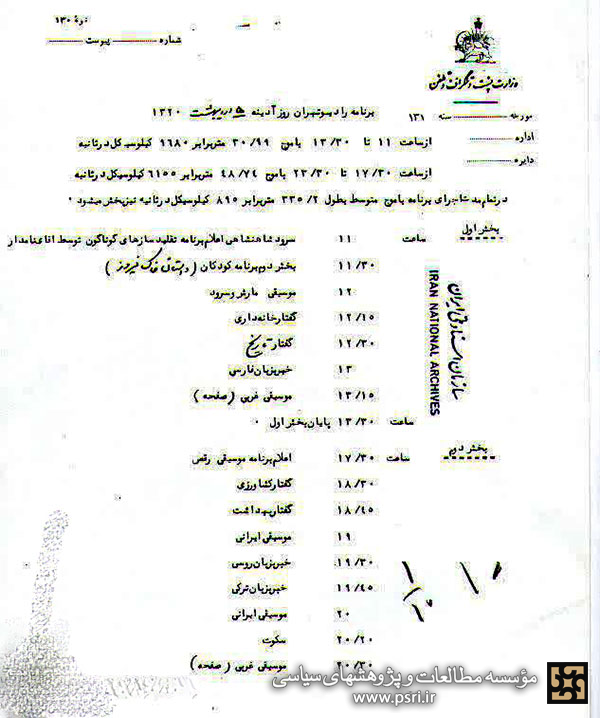 نمونهٔ ۱۳۰
شماره ـــــــ پیوست ـــــــ
وزارت پست و تلگراف و تلفن
مورخه ـــــــ سنه ۱۳۱
اداره ـــــــ
دایره ـــــــ
برنامه رادیو تهران روز آدینه ۵ اردیبهشت ۱۳۲۰
از ساعت ۱۱ تا ۱۳/۳۰ باموج ۳۰/۹۹ متر برابر ۹۶۸۰ کیلوسیکل در ثانیه
از ساعت ۱۷/۳۰ تا ۲۳/۳۰ باموج ۴۸/۷۴ متر برابر ۶۱۵۵ کیلوسیکل در ثانیه
در تمام مدت اجرای برنامه باموج متوسط بطول ۳۳۵/۲ متر برابر ۸۹۵ کیلوسیکل در ثانیه نیز پخش میشود ۰
بخش اول
ساعت ۱۱ سرود شاهنشاهی اعلام برنامه تقلید سازهای گوناگون توسط آقای نامدار
۱۱/۳۰ بخش دوم برنامه کودکان
۱۲ موسیقی مارش و سرود
۱۲/۱۵ گفتار خانه داری
۱۲/۳۰ گفتار تاریخ
۱۳ خبر بزبان فارسی
۱۳/۱۵ موسیقی غربی (صفحه)
ساعت ۱۳/۳۰ پایان بخش اول ۰
سازمان اسناد ملی ایران
IRAN NATIONAL ARCHIVES
بخش دوم
ساعت ۱۷/۳۰ اعلام برنامه موسیقی رقص
۱۸/۳۰ گفتار کشاورزی
۱۸/۴۵ گفتار بهداشت
۱۹ موسیقی ایرانی
۱۹/۳۰ خبر بزبان روسی
۱۹/۴۵ خبر بزبان ترکی
۲۰ موسیقی ایرانی
۲۰/۲۰ سکوت
۲۰/۳۰ موسیقی غربی (صفحه)
مؤسسه مطالعات و پژوهشهای سیاسی
www.psri.ir